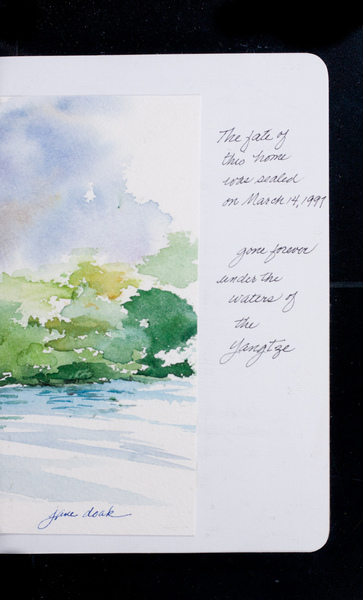 The fate of
this home
was sealed
on March 14, 1997
gone forever
under the
waters of
the
Yangtze
jane doak